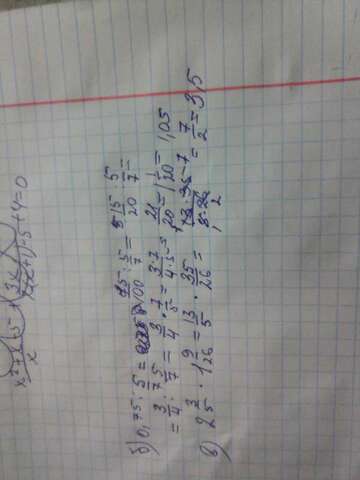 б) 0,75 : 5/7 = 75/100 : 5/7 = 15/20 : 5/7 =
= 3/4 : 5/7 = 3/4 · 7/5 = 3·7/4·5 = 21/20 = 1 1/20 = 1,05
в) 2 3/5 · 1 9/26 = 13/5 · 35/26 = 13·35/5·26 = 7/2 = 3,5